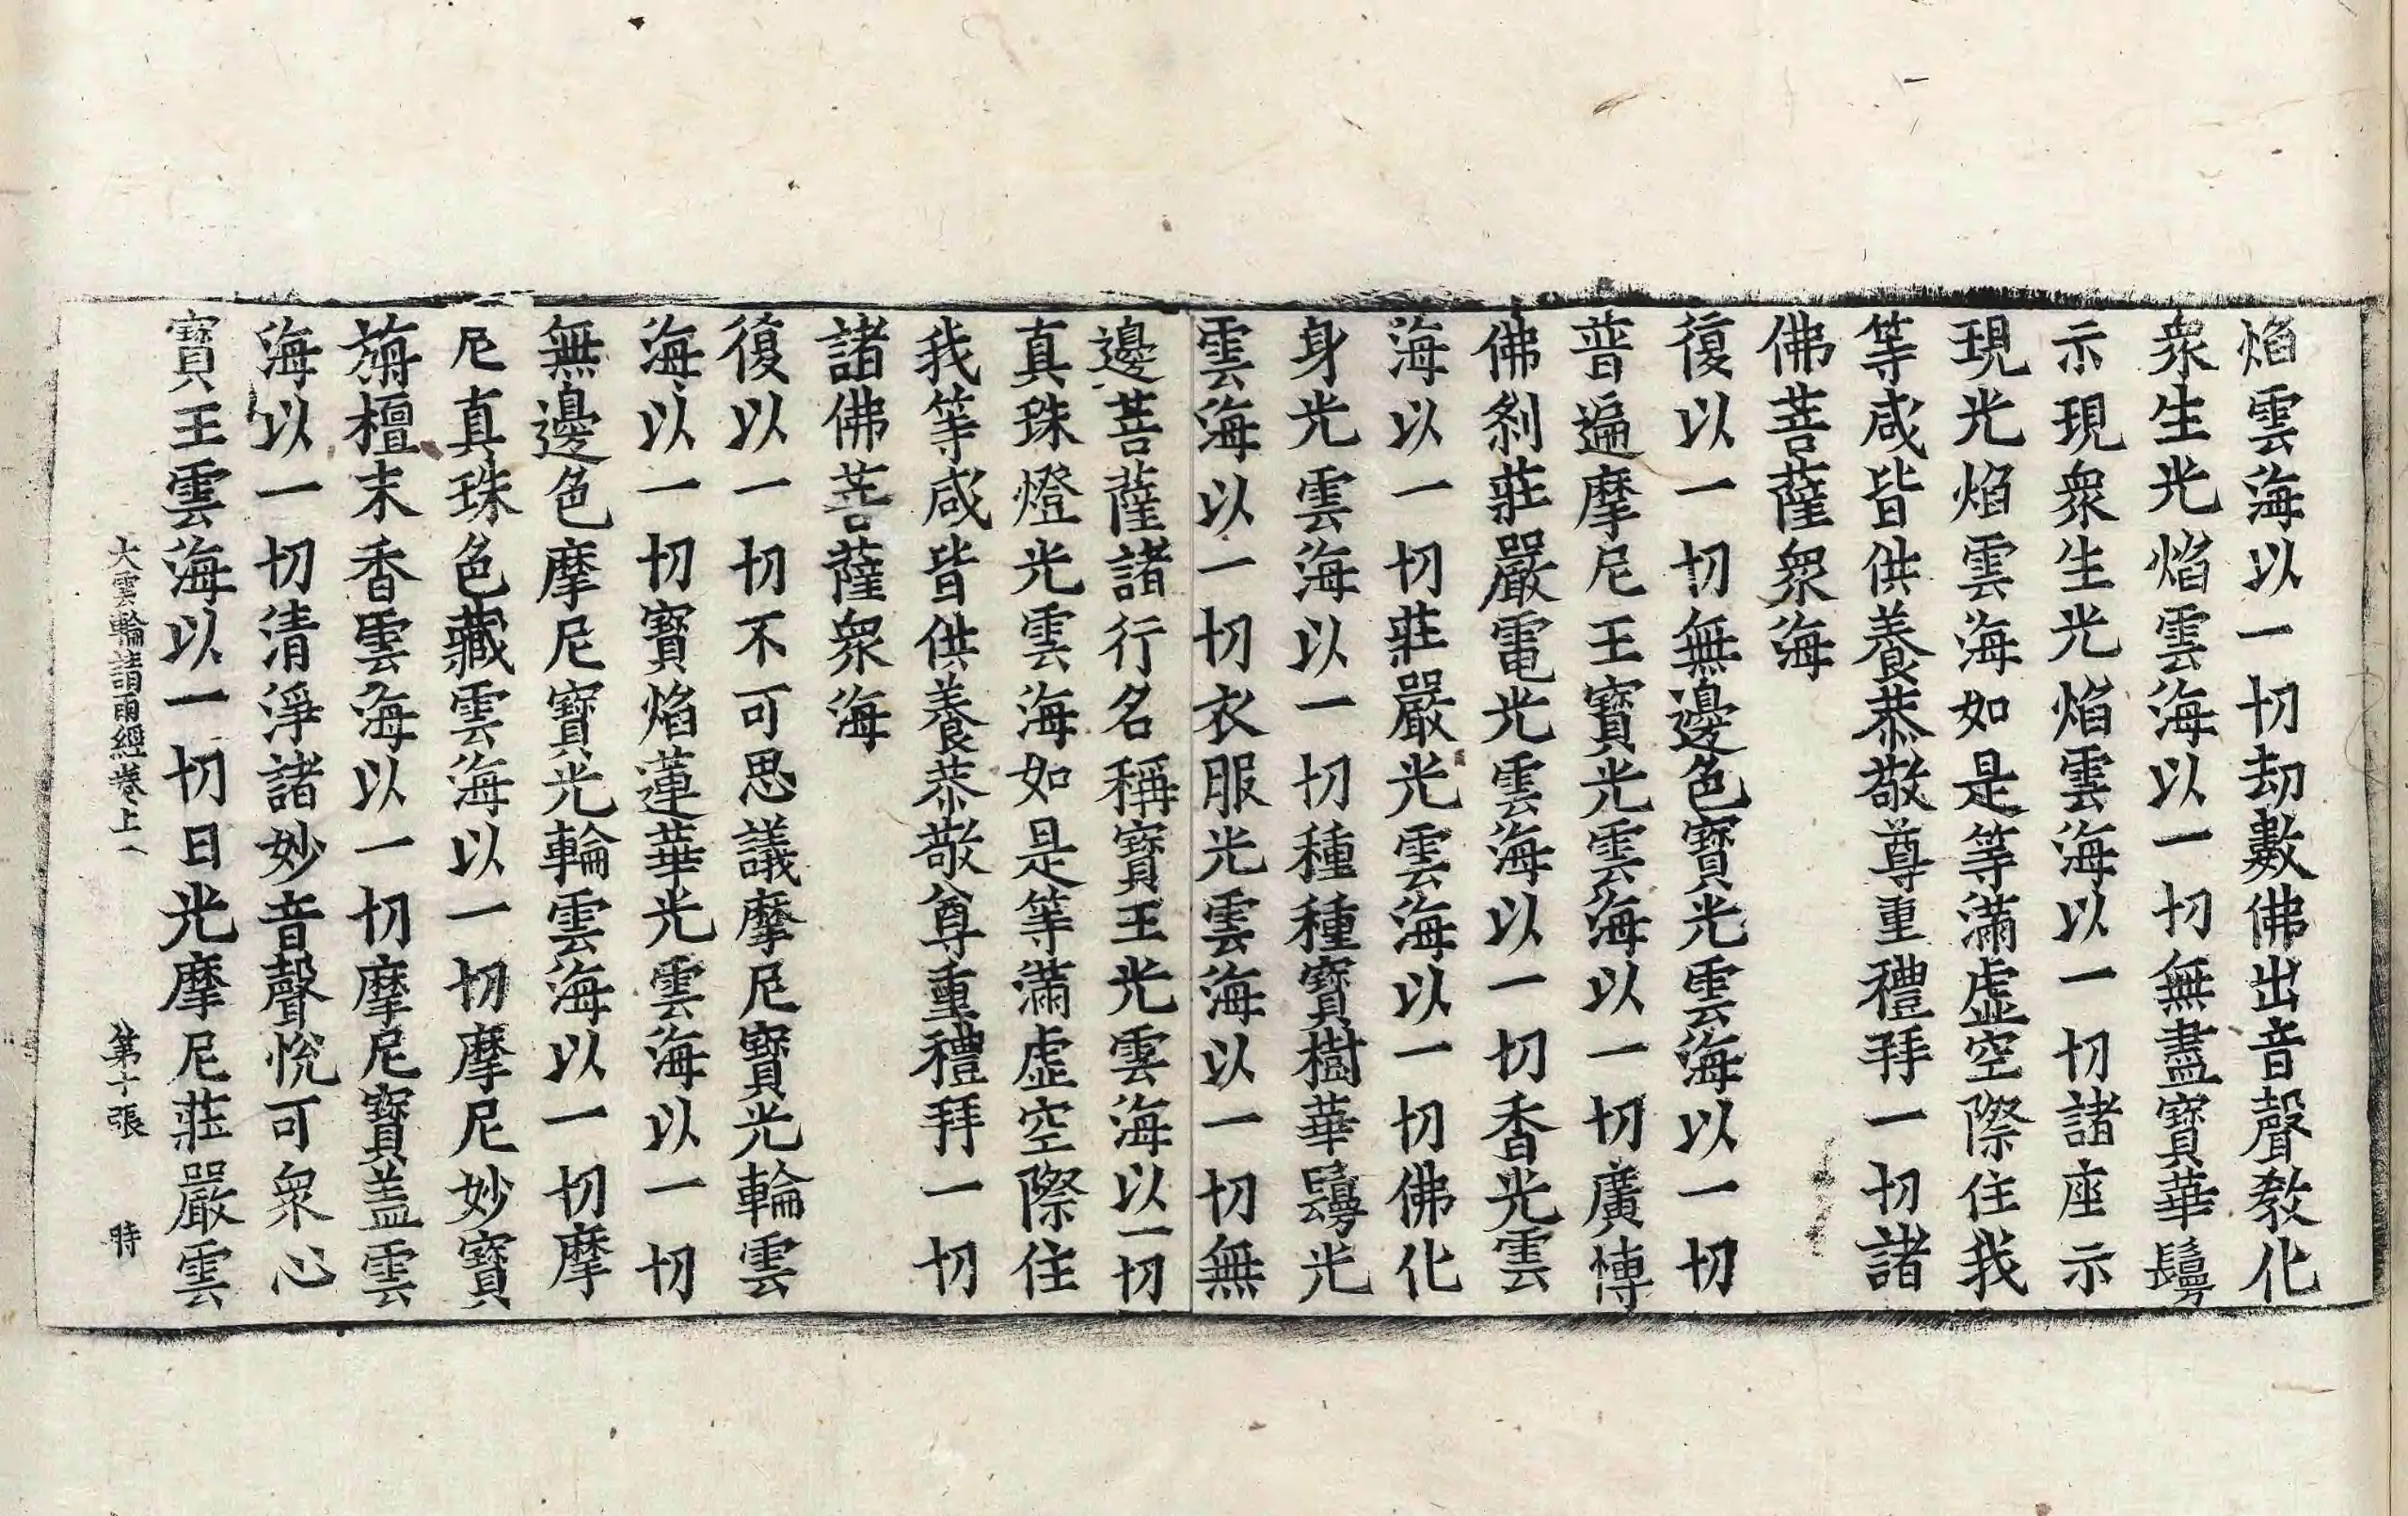 焰雲海以一切劫數佛出音聲教化
衆生光焰雲海以一切無盡寶華鬘
示現衆生光焰雲海以一切諸座示
現光焰雲海如是等滿虛空際住我
等咸皆供養恭敬尊重禮拜一切諸
佛菩薩衆海
復以一切無邊色寶光雲海以一切
普遍摩尼王寶光雲海以一切廣博
佛刹莊嚴電光雲海以一切香光雲
海以一切莊嚴光雲海以一切佛化
身光雲海以一切種種寶樹華鬘光
雲海以一切衣服光雲海以一切無
邊菩薩諸行名稱寶王光雲海以一切
真珠燈光雲海如是等滿虛空際住
我等咸皆供養恭敬尊重禮拜一切
諸佛菩薩衆海
復以一切不可思議摩尼寶光輪雲
海以一切寶焰蓮華光雲海以一切
無邊色摩尼寶光輪雲海以一切摩
尼真珠色藏雲海以一切摩尼妙寶
旃檀末香雲海以一切摩尼寶盖雲
海以一切清淨諸妙音聲悅可衆心
寶王雲海以一切日光摩尼莊嚴雲
大雲輪請雨經卷上 第十張 時